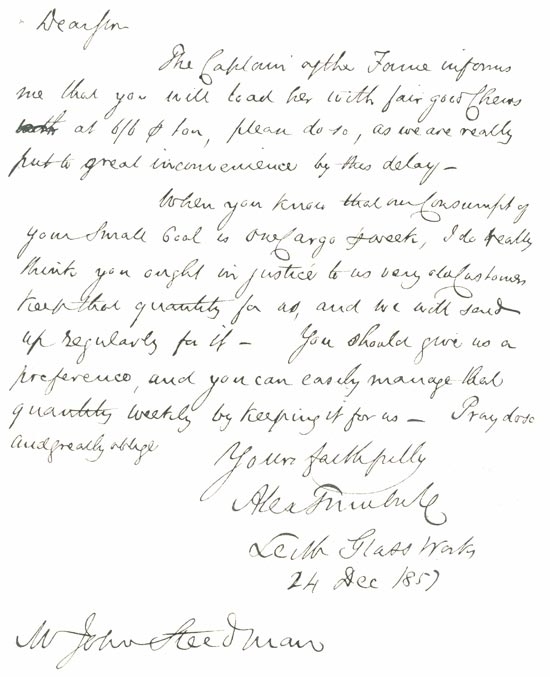 Dear Sir
The Captain of the Fame informs
me that you will load her with fair good Chews
at 6/6 ⅌ ton, please do so, as we are really
put to great inconvenience by this delay –
When you know that our Consumpt of
your Small Coal is one Cargo ⅌ week, I do really
think you ought in justice to us very old Customers
keep that quantity for us, and we will send
up regularly for it – You should give us a
preference, and you can easily manage that
quantity weekly by keeping it for us – Pray do so
and greatly oblige
Yours faithfully
Alex
Leith Glass Works
24 Dec 1857
Mr John Steedman